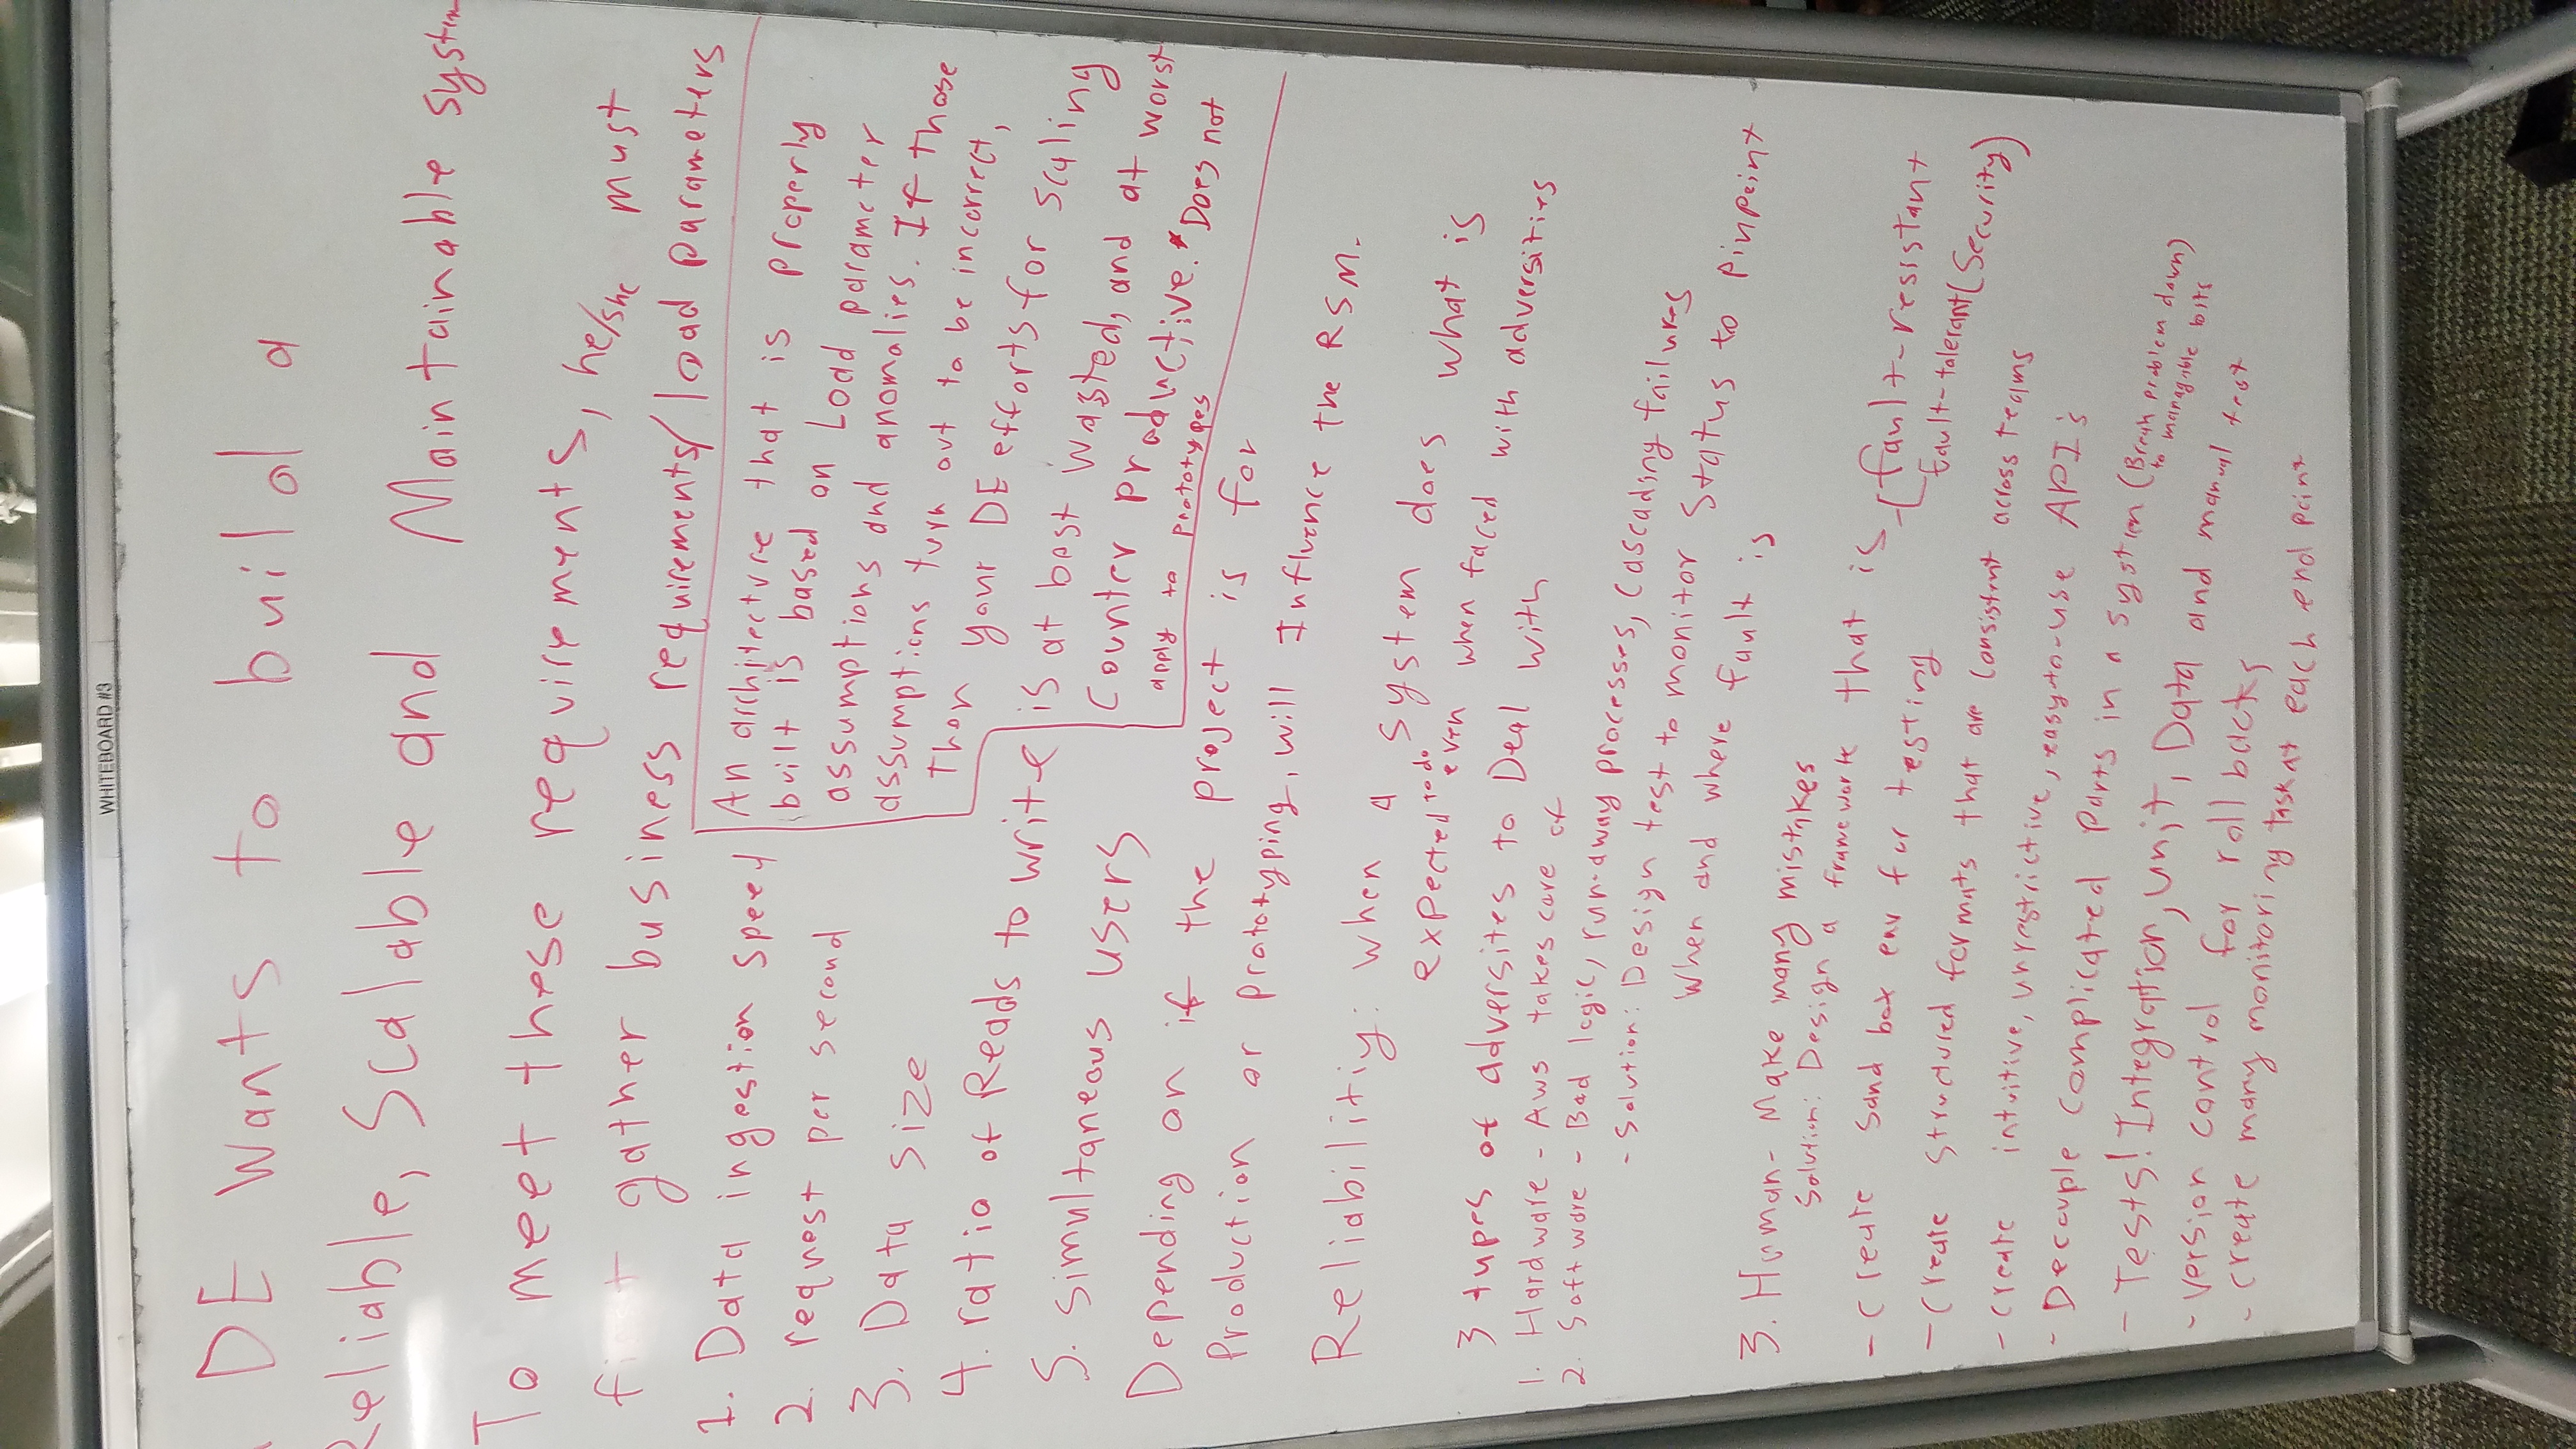 WHITEBOARD #3
DE wants to build a
Reliable, Scalable and Maintainable system
To meet these requirements, he/she must
first gather business requirements/load parameters
1. Data ingestion speed
2. request per second
3. Data size
4. ratio of Reads to write
5. simultaneous users
An architecture that is properly
built is based on Load parameter
assumptions and anomalies. If those
assumptions turn out to be incorrect,
Then your DE efforts for scaling
is at best wasted, and at worst
Counter productive. *Does not
apply to prototypes
Depending on if the project is for
Production or prototyping, will Influence the RSM.
Reliabilitiy: when a system does what is
expected to do even when faced with adversities
3 types of adversites to Deal with
1. Hardware - Aws takes care of
2. Software - Bad logic, run-away processes, Cascading failures
- Solution: Design test to monitor Status to pinpoint
When and where fault is
3. Human - Make many mistakes
Solution: Design a framework that is fault-resistant
fault-tolerant (Security)
- Create Sand box env for testing
- Create structured formats that are consistent across teams
- create intuitive, unrestrictive, easy-to-use API's
- Decouple complicated parts in a system (Break problem down)
to managable bits
- Tests! Integration, unit, Data and manual test
- version control for roll backs
- create many monitoring task at each end point